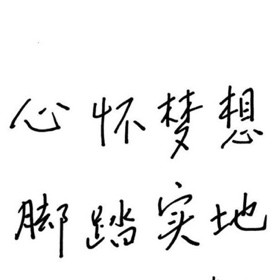 心怀梦想
脚踏实地